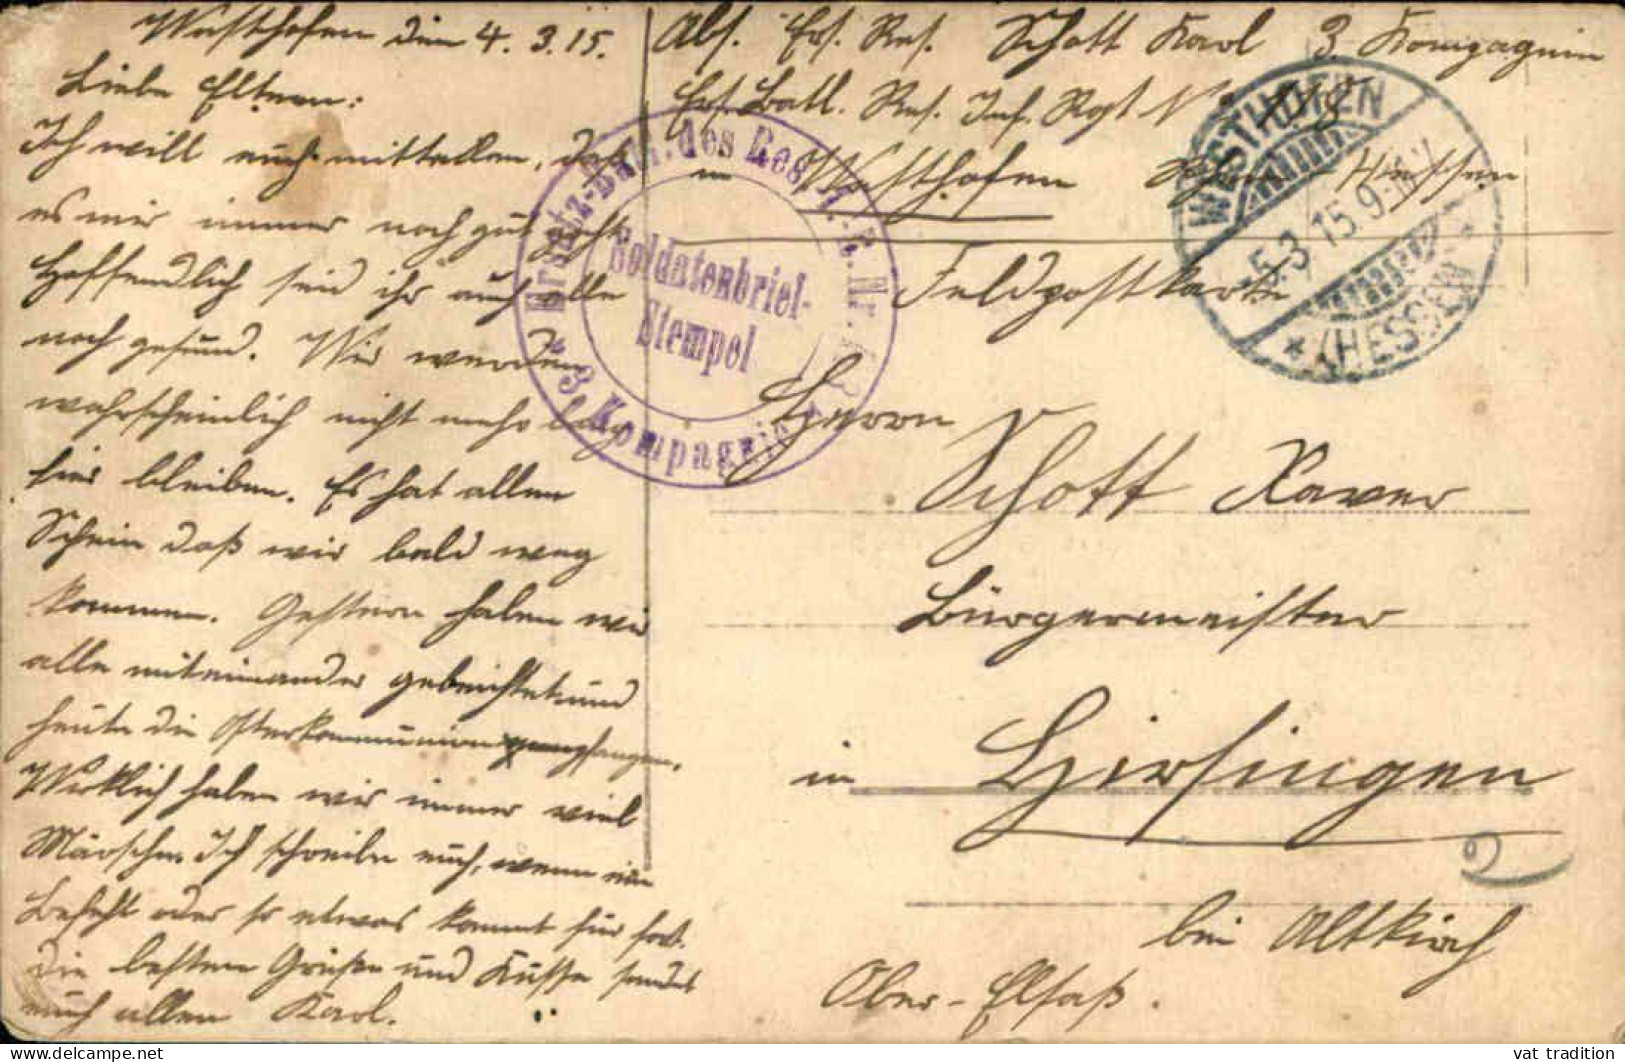 Westhofen den 4. 3. 15.
Liebe Eltern:
Ich will euch mitteilen, daß
es mir immer noch gut geht
Hoffendlich seid ihr auch alle
noch gesund. Wir werden
wahrscheinlich nicht mehr lang
hier bleiben. Es hat allen
Schein daß wir bald weg
kommen. Gestern haben wir
alle miteinander gebeichtet und
heute die Osterkommunion empfangen.
Wirklich haben wir immer viel
Märsche. Ich schreibe euch, wenn ein
Befehl oder so etwas kommt für fort.
Die besten Grüße und Küsse sendet
euch allen Karl.
Abs. Ers. Res. Schott Karl 3. Kompagnie
Ers. Batl. Res. Inf. Rgt N° 118
in Westhofen Rhein-Hessen
Feldpostkarte
Herrn
Schott Xaver
Bürgermeister
in Hirsingen
bei Altkirch
Ober-Elsaß.
Ersatz-Batl. des Res. I. R. Nr.
Soldatenbrief-
Stempel
* 3. Kompagnie *
WESTHOFEN
-5.3.15.9-10V.
* (HESSEN) *
vat tradition